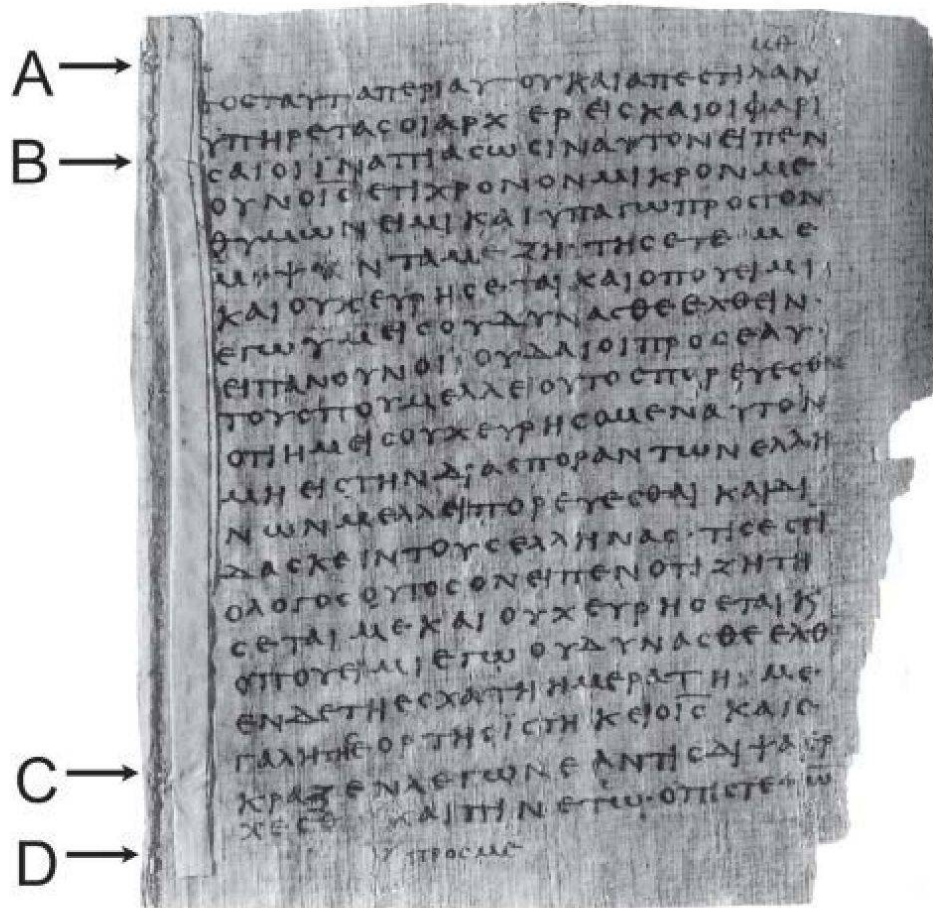 A
ΜΑ
ΤΟCΤΑΥΤΑΠΕΡΙΑΥΤΟΥΚΑΙΑΠΕCΤΙΛΑΝ
ΥΠΗΡΕΤΑCΟΙΑΡΧ ΕΡΕΙCΚΑΙΟΙΦΑΡΙ
B
CΑΙΟΙΙΝΑΠΙΑCΩCΙΝΑΥΤΟΝΕΙΠΕΝ
ΟΥΝΟΙC̅ΕΤΙΧΡΟΝΟΝΜΙΚΡΟΝΜΕ
ΘΥΜΩΝΕΙΜΙΚΑΙΥΠΑΓΩΠΡΟCΤΟΝ
ΝΤΑΜΕ ΖΗΤΗCΕΤΕ ΜΕ
ΚΑΙΟΥΧΕΥΡΗCΕΤΑΙΚΑΙΟΠΟΥΕΙΜΙ
ΕΓΩΥΜΕΙCΟΥΔΥΝΑCΘΕΕΛΘΕΙΝ·
ΕΙΠΑΝΟΥΝΟΙΙΟΥΔΑΙΟΙΠΡΟCΕΑΥ
ΤΟΥCΠΟΥΜΕΛΛΕΙΟΥΤΟCΠΟΡΕΥΕCΘΕ
ΟΤΙΗΜΕΙCΟΥΧΕΥΡΗCΟΜΕΝΑΥΤΟΝ
ΜΗΕΙCΤΗΝΔΙΑCΠΟΡΑΝΤΩΝΕΛΛΗ
ΝΩΝΜΕΛΛΕΙΠΟΡΕΥΕCΘΑΙ ΚΑΙΔΙ
ΔΑCΚΕΙΝΤΟΥCΕΛΛΗΝΑC·ΤΙCΕCΤΙ
ΟΛΟΓΟCΟΥΤΟCΟΝΕΙΠΕΝΟΤΙΖΗΤΗ
CΕΤΑΙΜΕΚΑΙΟΥΧΕΥΡΗCΕΤΑΙΚ
ΟΠΟΥΕΙΜΙΕΓΩΟΥΔΥΝΑCΘΕΕΛΘ
ΕΝΔΕΤΗΕCΧΑΤΗΗΜΕΡΑΤΗ ΜΕ
ΓΑΛΗΤΗCΕΟΡΤΗCΙCΤΗΚΕΙΟΙC̅ ΚΑΙΕ
C
ΚΡΑΖΕΝΛΕΓΩΝΕΑΝΤΙCΔΙΨΑΕΡ
ΧΕCΘ ΚΑΙΠΙΝΕΤΩ·ΟΠΙCΤΕΥΩ
D
ΠΡΟCΜΕ